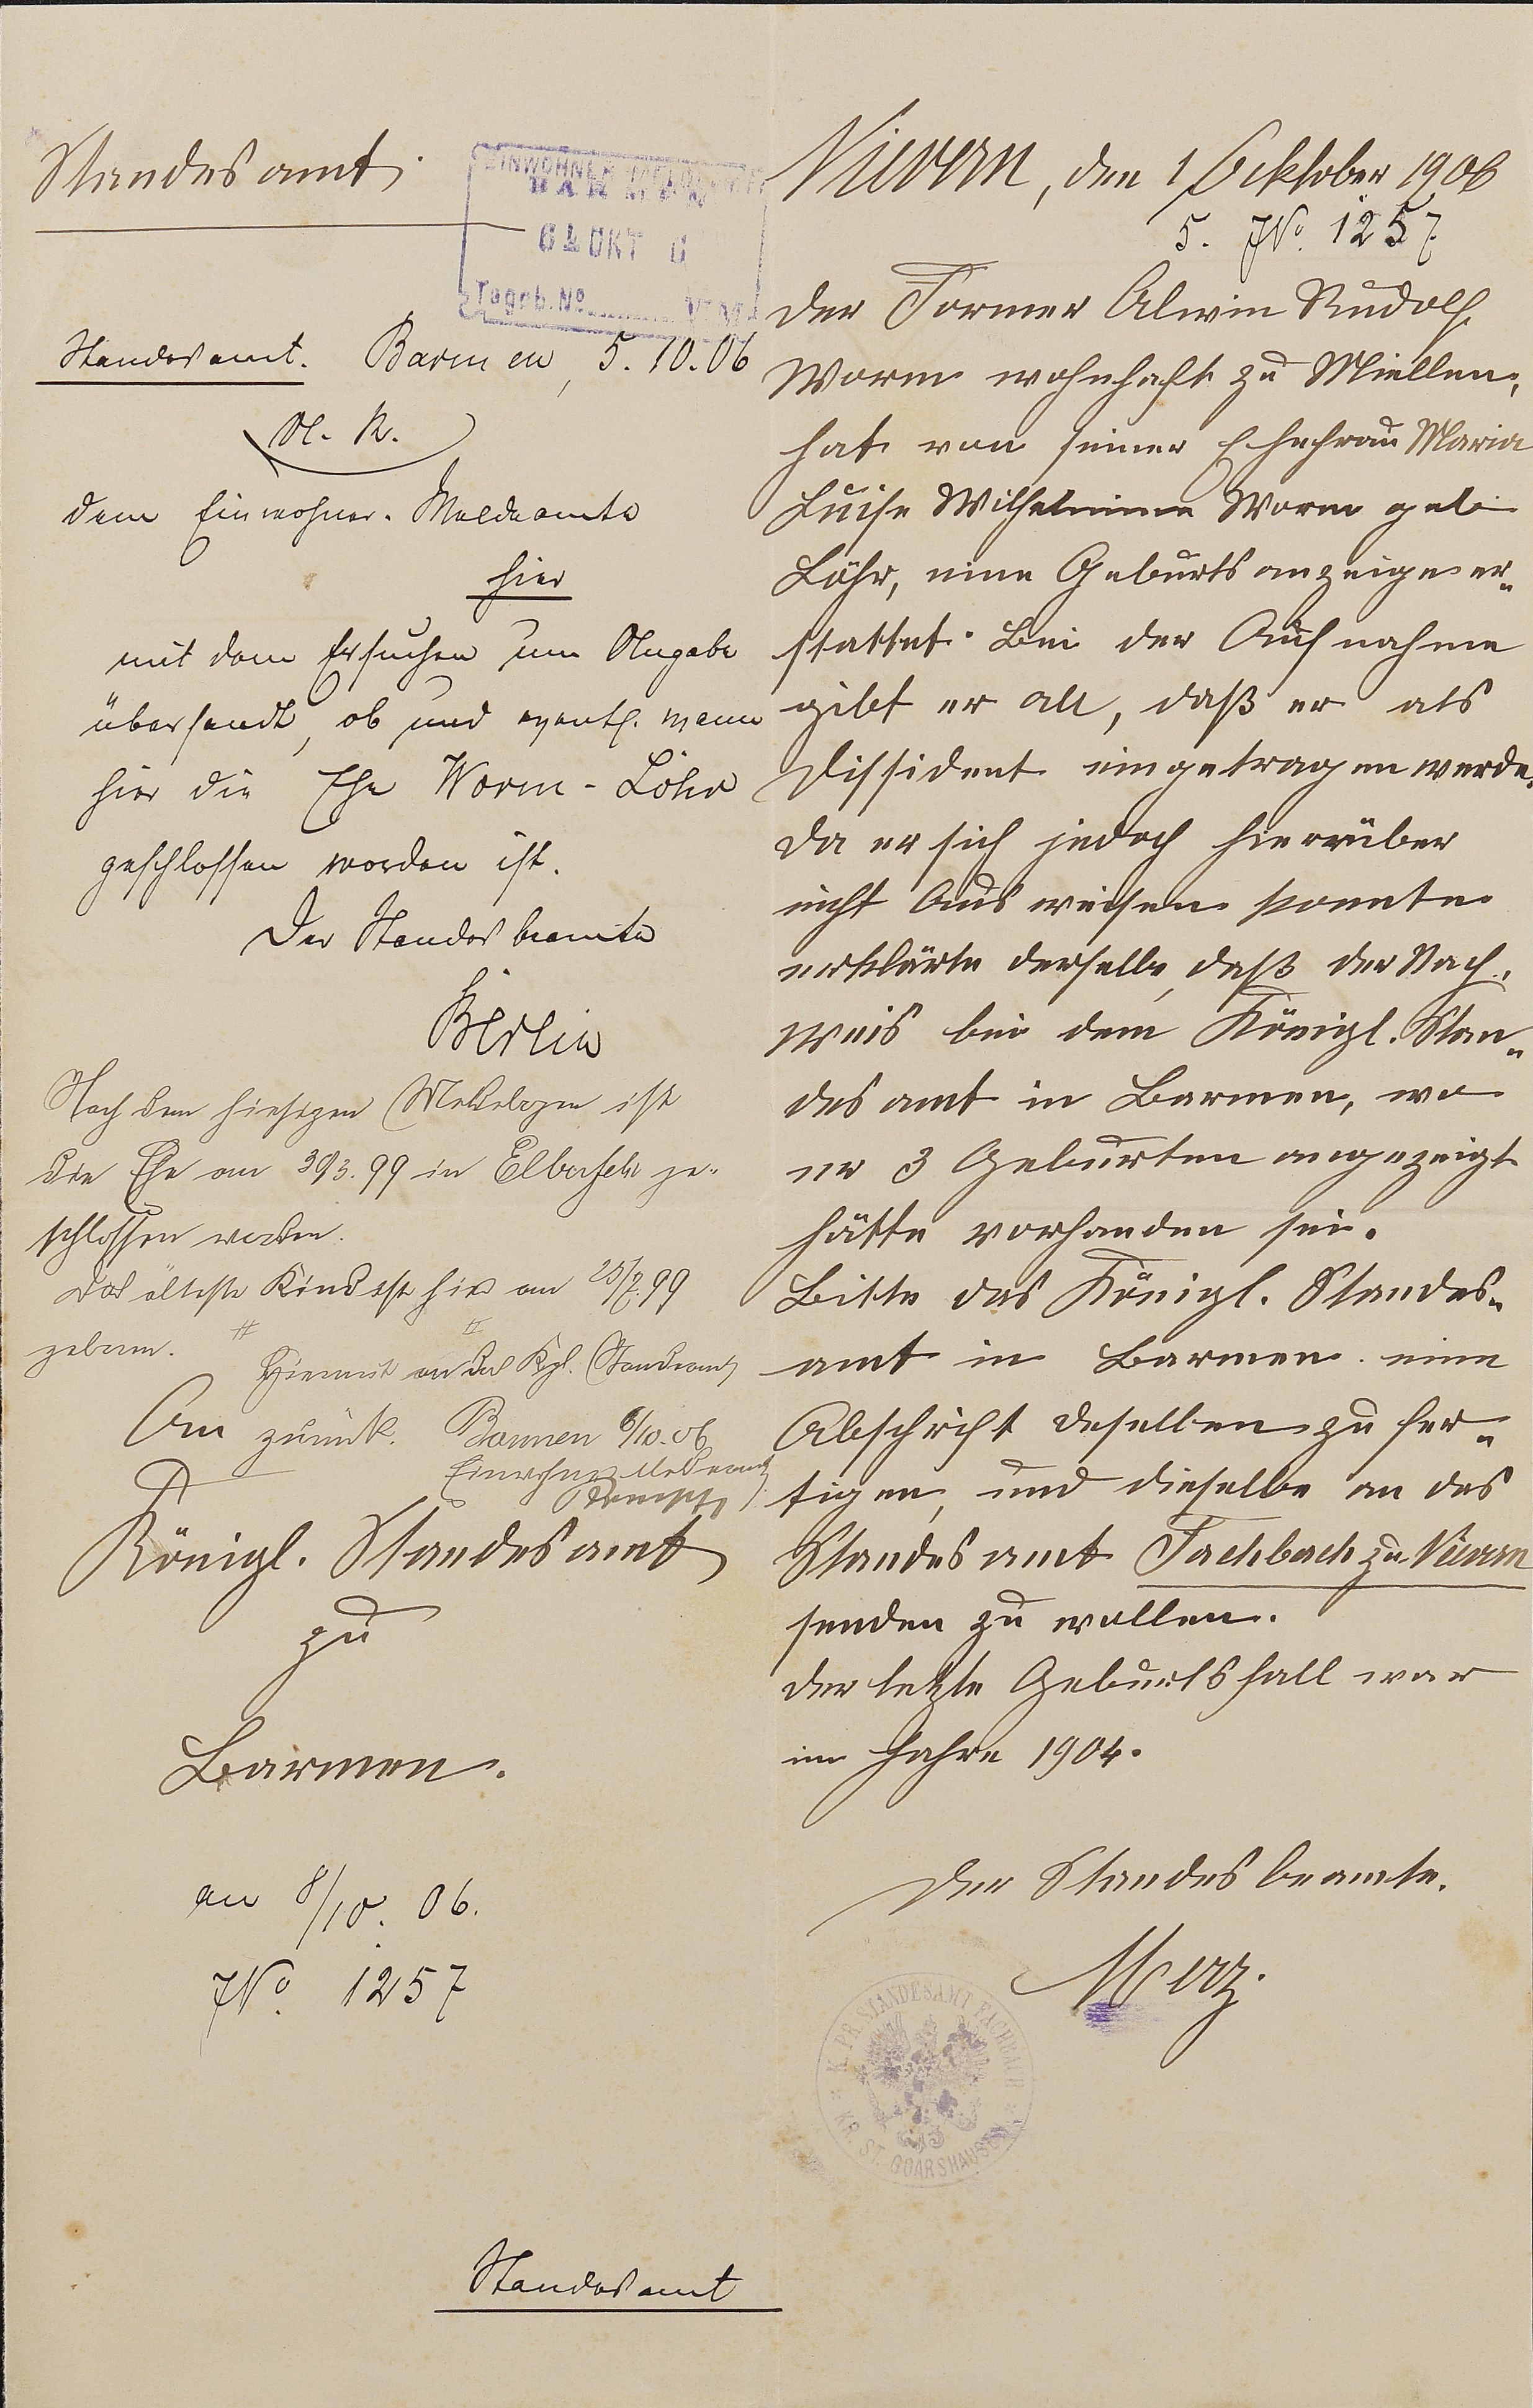 Standesamt
Nievern, den 1 Ocktober 1906
5. JNo. 1257
Der Former Alwin Rudolf
Worm wohnhaft zu Miellen,
hat von seiner Ehefrau Maria
Luise Wilhelmine Worm geb.
Löhr, eine Geburtsanzeige er„
stattet. Bei der Aufnahme
gibt er an, daß er als
Dissident eingetragen werde.
Da er sich jedoch hierrüber
nicht Ausweisen konnte
erklärte derselbe, daß der Nach„
weis bei dem Königl. Stan„
desamt in Barmen, wo
er 3 Geburten angezeigt
hätte vorhanden sei.
Bitte das Königl. Standes„
amt in Barmen eine
Abschrift deselben zu fer„
tigen, und dieselbe an das
Standesamt Fachbach zu Nievern
senden zu wollen.
Der letzte Geburtsfall war
im Jahre 1904.
Der Standesbeamte.
Merz.
K. PR. STANDESAMT FACHBACH
KR. ST. GOARSHAUSEN
EINWOHNER
BARMEN
6 OKT 6
Tageb. No
Standesamt. Barmen, 5.10.06
U. R.
dem Einwohner-Meldeamte
hier
mit dem Ersuchen um Angabe
übersandt, ob und eventl. wann
hier die Ehe Worm-Löhr
geschlossen worden ist.
Der Standesbeamte
Nach den hiesigen Meldebogen ist
die Ehe am in Elberfeld ge„
schlossen worden.
Das älteste Kind ist hier am 99
geboren.
Hiermit an das Kgl. Standesamt
zurück. Barmen 6/10.06
Einwohner Meldeamt
An
Königl. Standesamt
zu
Barmen.
an 8/10. 06.
JNo. 1257
Standesamt